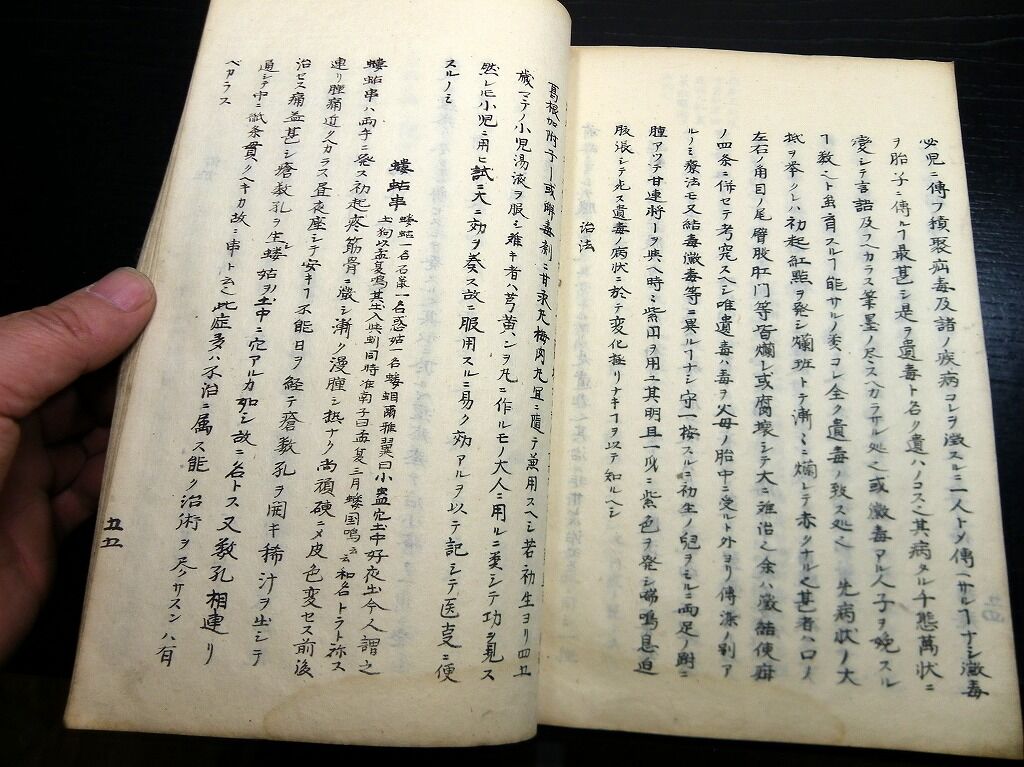 必児ニ傳フ積聚病毒及諸ノ疾病コレヲ徴スルニ一人トメ傳ヘサルヿナシ黴毒
ヲ胎子ニ傳ルヿ最甚シ是ヲ遺毒ト名ク遺ハノコス也其病タル千態萬状ニ
変シテ言語及フヘカラス筆墨ノ尽スヘカラサル処也或黴毒アル人子ヲ娩スル
ヿ数也ト虽育スルヿ能サルノ类コレ全ク遺毒ノ致ス処也先病状ノ大
抵ヲ挙クレハ初起紅點ヲ発シ爛班ト漸〻ニ爛レテ赤クナル也甚者ハ口ノ
左右ノ角目ノ尾臂股肛门等皆爛レ或腐壊シテ大ニ难治也余ハ黴結使毎
ノ四条ニ併セテ考究スヘシ唯遺毒ハ毒ヲ父母ノ胎中ニ受ルト外ヨリ傳染ノ别ア
ルノミ療法モ又結毒黴毒等ニ異ルヿナシ守一按スルニ初生ノ兒ヲミルニ両足ノ跗ニ
腫アツテ甘連将ーヲ與ヘ時〻紫円ヲ用ユ其明且一身ニ紫色ヲ発シ喘鳴息迫
脹張シテ死ス遺毒ノ病状ニ於テ変化極リナキヿヲ以テ知ルヘシ
治法
葛根加附子ー或解毒剤ニ甘汞丸梅肉丸宜ニ隨テ兼用スヘシ若初生ヨリ四五
歳マテノ小児湯液ヲ服シ难キ者ハ芎黄ーンヲ丸ニ作ルモノ大人ニ用ルニ类シテ功ヲ見ス
然レ圧小児ニ用ヒ試ニ大ニ効ヲ奏ス故ニ服用スルニ易ク効アルヲ以テ記シテ医支ニ便
スルノミ
螻蛄串
螻蛄一名石鼠一名惑蛄一名螻蝈爾雅翼曰小蟲穴土中好夜出今人謂之
土狗以孟夏鳴其出入與蚓同時淮南子曰孟夏三月螻国鳴云和名トラト称ス
螻蛄串ハ両手ニ発ス初起疼筋骨ニ徴シ漸ク漫腫シ熱ナク尚頑硬ニメ皮色変セス前後
連リ腫痛近クヘカラス昼夜座シテ安キヿ不能日ヲ経テ瘡数孔ヲ開キ稀汁ヲ出シテ
治セス痛益甚シ瘡数孔ヲ生螻蛄ヲ土中ニ穴アルカ如シ故ニ名トス又数孔相連リ
通シテ中ニ紙条貫クヘキカ故ニ串ト云也此症多ハ不治ニ属ス能ク治術ヲ尽クサスンハ有
ベカラス
五五